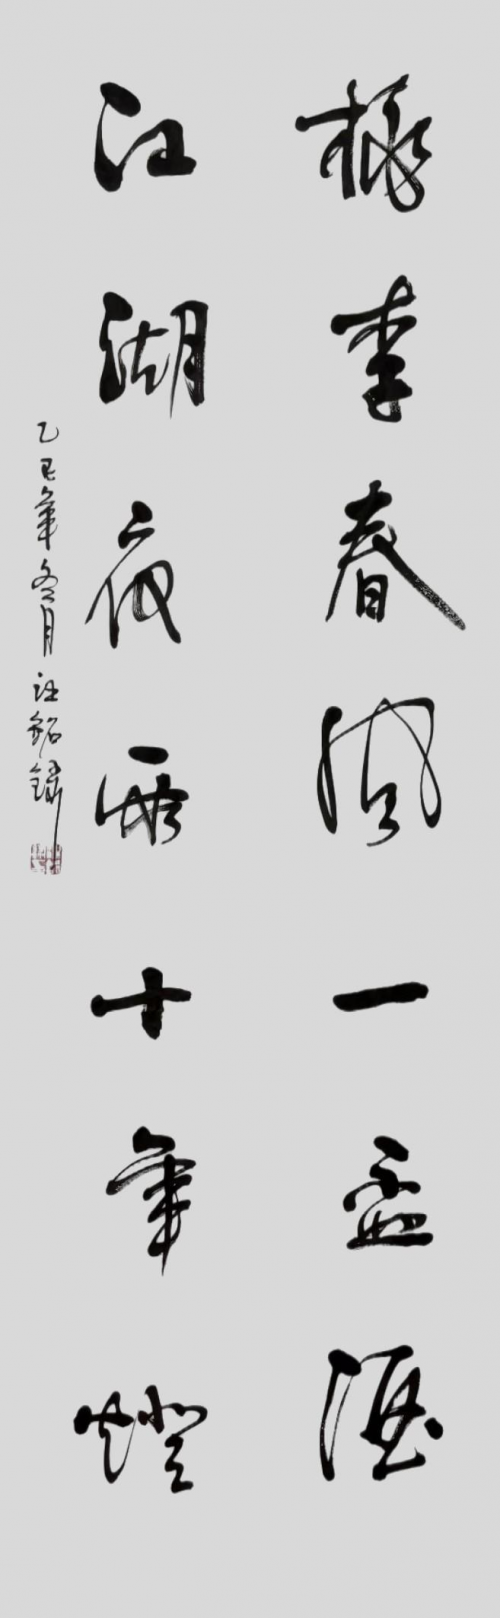 桃李春風一盃酒
江湖夜雨十年燈
乙巳年冬月汪銘鏽